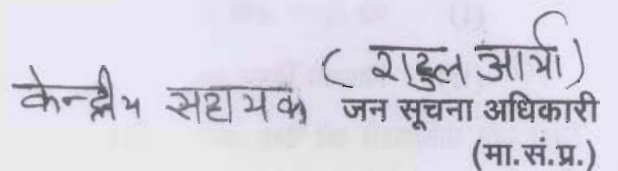 (राहुल आर्या)
केन्द्रीय सहायक जन सूचना अधिकारी
(मा.सं.प्र.)